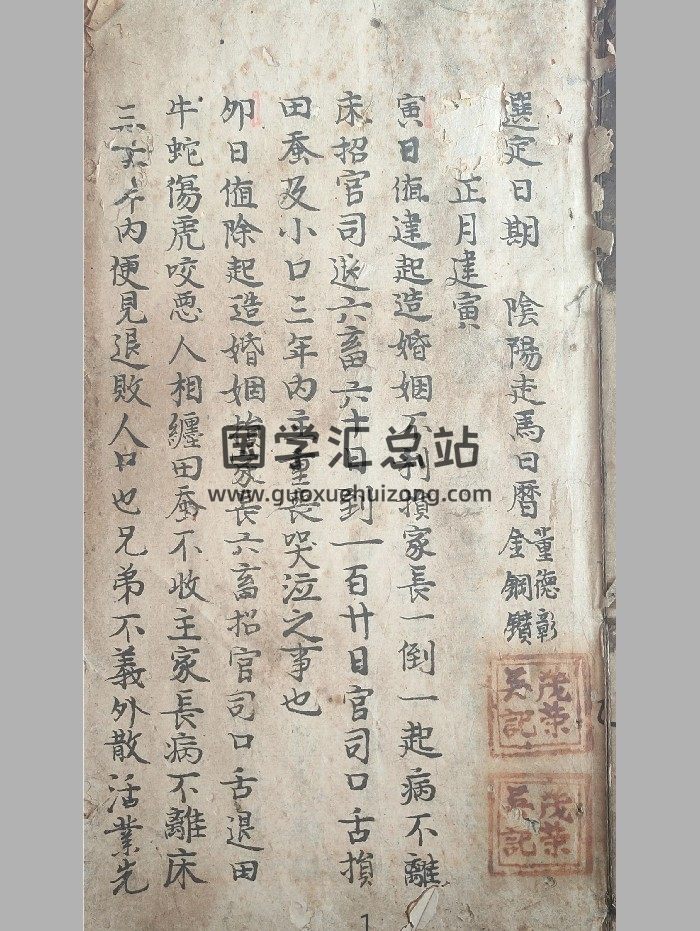 選定日期 陰陽走馬日曆 董德彰
金鋼鑽
茂榮
吴記
茂榮
吴記
正月建寅
寅日值建起造婚姻不利損家長一倒一起病不離
床招官司退六畜六十日到一百廿日官司口舌損
田蚕及小口三年內主重喪哭泣之事也
卯日值除起造婚姻損家長六畜招官司口舌退田
牛蛇傷虎咬悪人相纏田蚕不收主家長病不離床
三六年內便見退敗人口也兄弟不義外散活業先
国学汇总站
www.guoxuehuizong.com
1